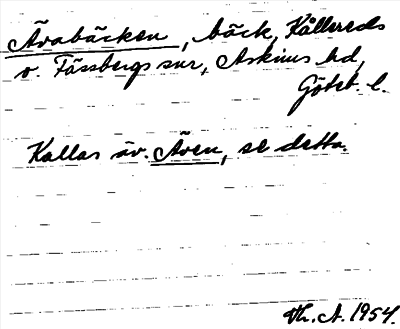 Åvabäcken, bäck, Kållereds
o. Fässbergs snr, Askims hd,
Göteb. l.
Kallas äv. Åven, se detta.
Vh. A. 1954.